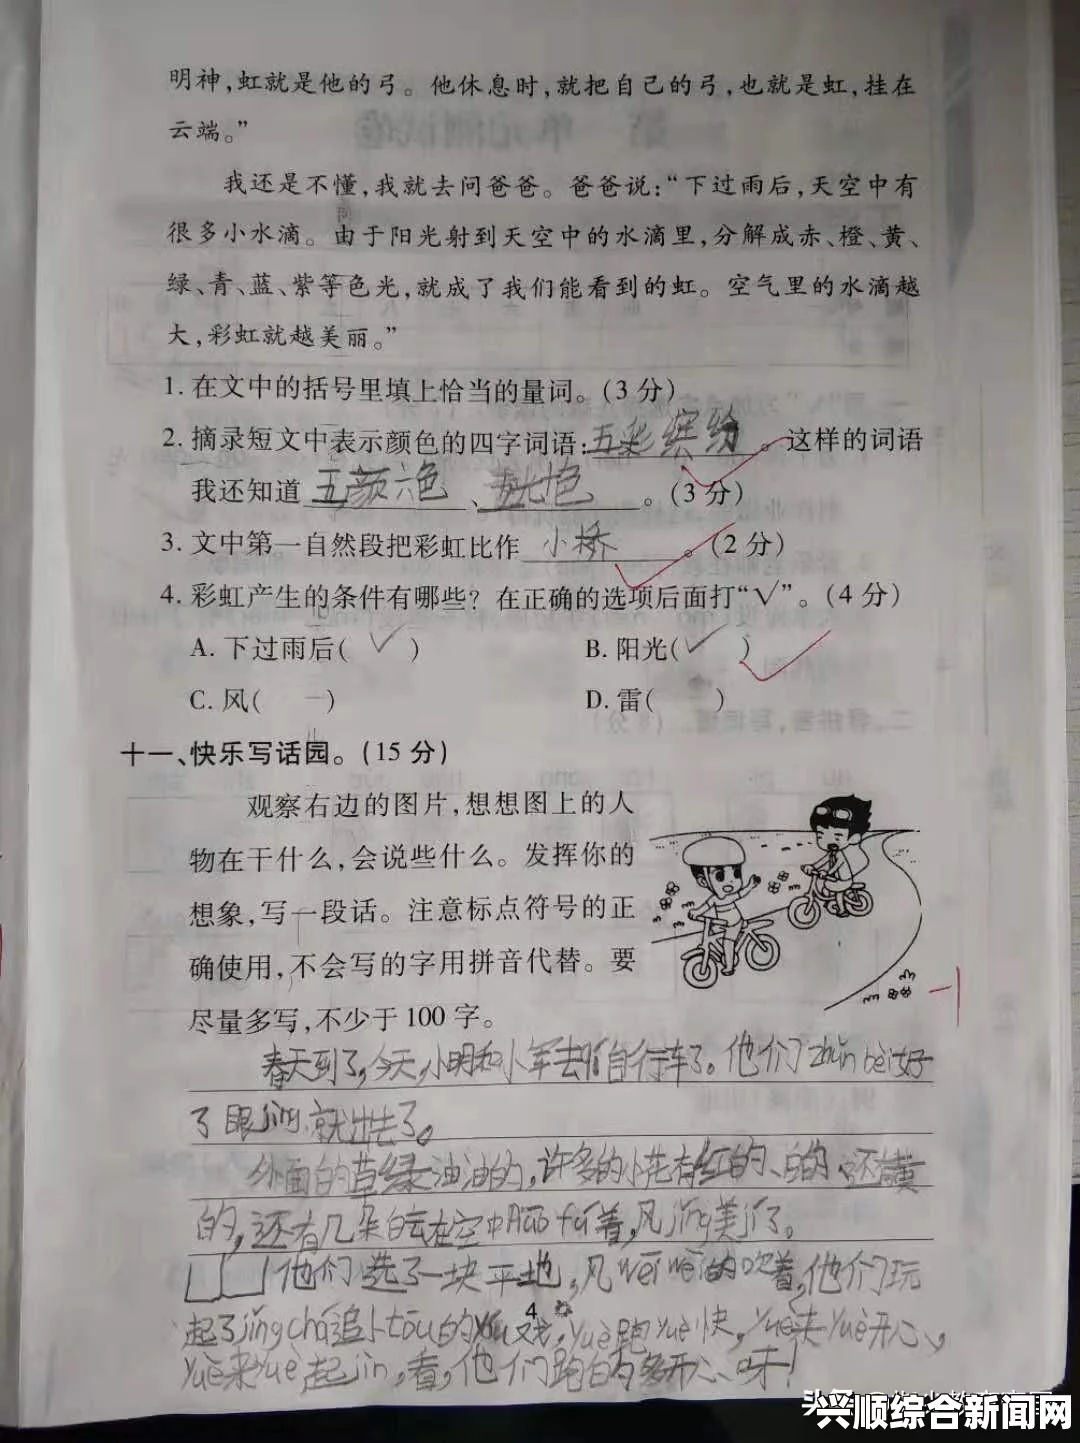 明神,虹就是他的弓。他休息时,就把自己的弓,也就是虹,挂在
云端。”
我还是不懂,我就去问爸爸。爸爸说:“下过雨后,天空中有
很多小水滴。由于阳光射到天空中的水滴里,分解成赤、橙、黄、
绿、青、蓝、紫等色光,就成了我们能看到的虹。空气里的水滴越
大,彩虹就越美丽。”
1. 在文中的括号里填上恰当的量词。(3 分)
2. 摘录短文中表示颜色的四字词语:五彩缤纷。这样的词语
我还知道 五颜六色 、。(3 分)
3. 文中第一自然段把彩虹比作 小桥 。(2 分)
4. 彩虹产生的条件有哪些? 在正确的选项后面打“√”。(4 分)
A. 下过雨后( ✓ ) B. 阳光( ✓ )
C. 风( ) D. 雷( )
十一、快乐写话园。(15 分)
观察右边的图片,想想图上的人
物在干什么,会说些什么。发挥你的
想象,写一段话。注意标点符号的正
确使用,不会写的字用拼音代替。要
尽量多写,不少于 100 字。
-1
春天到了,今天,小明和小军去自行车了。他们zhǔn bèi好
了眼jìng,就出去了。
外面的草绿油油的,许多的小花有红的、白的、还有黄
的,还有几朵白云在空中piāo fú着,风jǐng美jí了。
他们选了一块平地,风wēi wēi的吹着,他们玩
起了jǐng chá追小tōu的yóu戏,yuè跑yuè快,yuè来yuè开心,
yuè来yuè起jìn,看,他们跑的多开心呀!
4
头条
兴顺综合新闻网